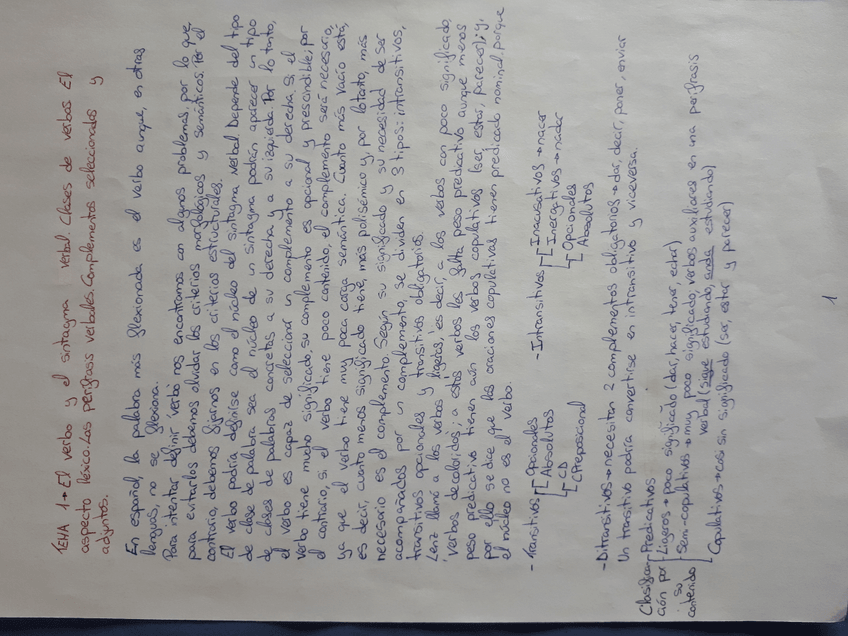 TEMA 1→El verbo y el sintagma verbal. Clases de verbos El
aspecto léxico. Las perífrasis verbales. Complementos seleccionados y
adjuntos.
En español, la palabra más flexionada es el verbo aunque, en otras
lenguas, no se flexiona.
Para intentar definir verbo nos encontramos con algunos problemas, por lo que
para evitarlos debemos olvidar los criterios morfológicos y semánticos. Por el
contrario, debemos fijarnos en los criterios estructurales.
El verbo podría definirse como el núcleo del sintagma verbal. Depende del tipo
de clase de palabra sea el núcleo de un sintagma podrán aparecer un tipo
de clases de palabras concretas a su derecha y a su izquierda. Por lo tanto,
el verbo es capaz de seleccionar un complemento a su derecha. Si el
verbo tiene mucho significado, su complemento es opcional y prescindible; por
el contrario, si el verbo tiene poco contenido, el complemento será necesario,
ya que el verbo tiene muy poca carga semántica. Cuanto más vacío está,
es decir, cuanto menos significado tiene, más polisémico y, por lo tanto, más
necesario es el complemento. Según su significado y su necesidad de ser
acompañados por un complemento, se dividen en 3 tipos: intransitivos,
transitivos opcionales y transitivos obligatorios.
Lenz llamó a los verbos ligeros, es decir, a los verbos con poco significado,
'verbos descoloridos'; a estos verbos les falta peso predicativo aunque menos
peso predicativo tienen aún los verbos copulativos (ser, estar, parecer); y,
por ello se dice que las oraciones copulativas tienen predicado nominal porque
el núcleo no es el verbo.
-Transitivos Opcionales
Absolutos
CD
CPreposicional
-Intransitivos Inacusativos→nacer
Inergativos→nadar
Opcionales
Absolutos
-Ditransitivos→necesitan 2 complementos obligatorios→dar, decir, poner, enviar
Un transitivo podría convertirse en intransitivo y viceversa.
Clasificación por su contenido
Predicativos
Ligeros→poco significado (dar, hacer, tener, echar)
Semi-copulativos→muy poco significado, verbos auxiliares en una perífrasis
verbal (sigue estudiando, anda estudiando)
Copulativos→casi sin significado (ser, estar y parecer)
1